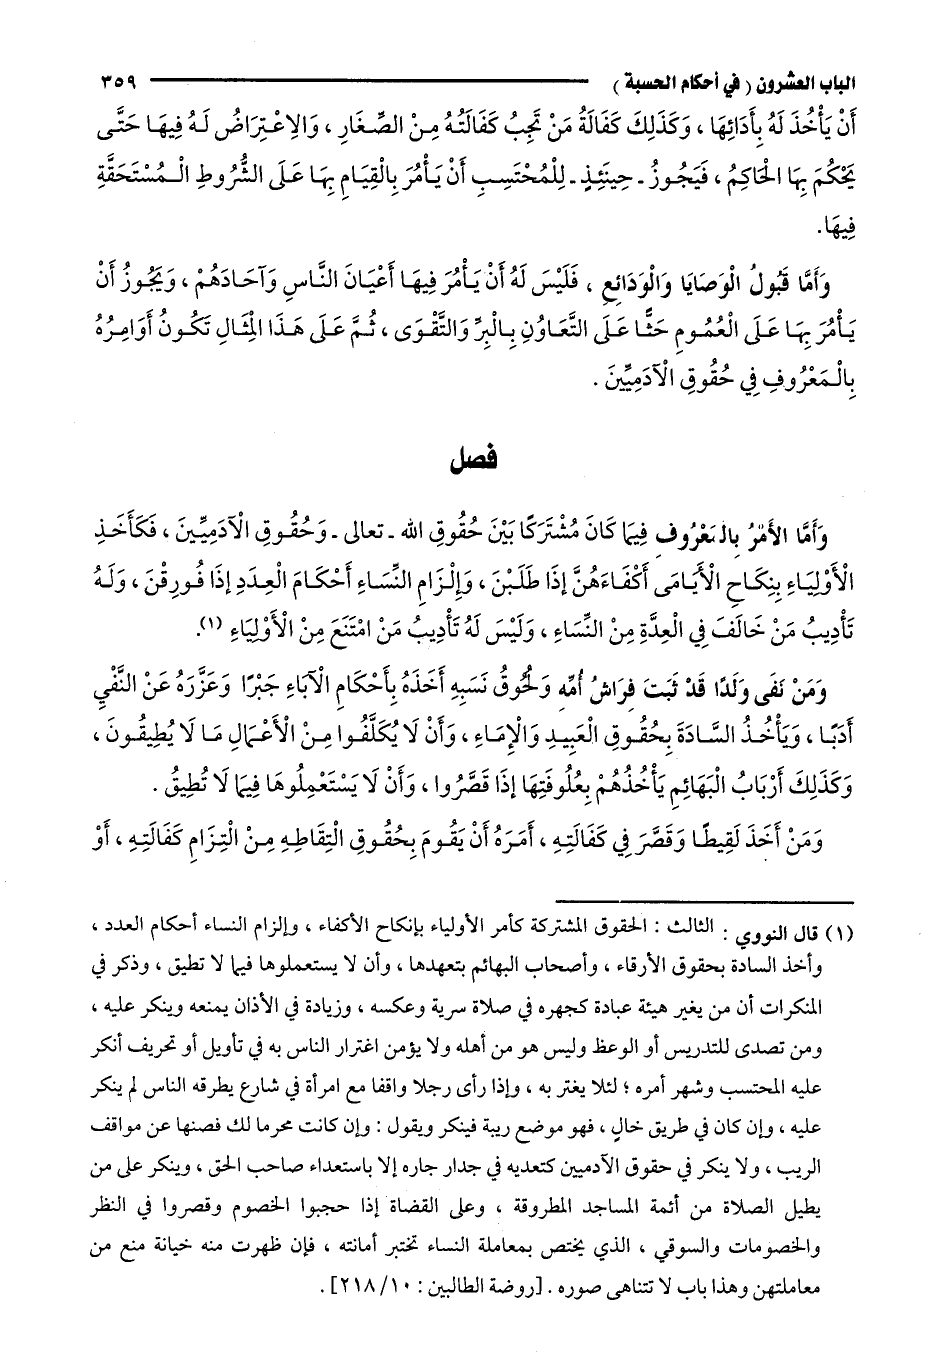 الباب العشرون ( في أحكام الحسبة ) ٣٥٩
أَنْ يَأْخُذَ لَهُ بِأَدَائِهَا ، وَكَذَلِكَ كَفَالَةُ مَنْ تَجِبُ كَفَالَتُهُ مِنْ الصِّغَارِ ، وَالِاعْتِرَاضُ لَهُ فِيهَا حَتَّى
يَحْكُمَ بِهَا الْحَاكِمُ ، فَيَجُوزُ ـ حِينَئِذٍ ـ لِلْمُحْتَسِبِ أَنْ يَأْمُرَ بِالْقِيَامِ بِهَا عَلَى الشُّرُوطِ الْمُسْتَحَقَّةِ
فِيهَا.
وَأَمَّا قَبُولُ الْوَصَايَا وَالْوَدَائِعِ ، فَلَيْسَ لَهُ أَنْ يَأْمُرَ فِيهَا أَعْيَانَ النَّاسِ وَآحَادَهُمْ ، وَيَجُوزُ أَنْ
يَأْمُرَ بِهَا عَلَى الْعُمُومِ حَثًّا عَلَى التَّعَاوُنِ بِالْبِرِّ وَالتَّقْوَى ، ثُمَّ عَلَى هَذَا الْمِثَالِ تَكُونُ أَوَامِرُهُ
بِالْمَعْرُوفِ فِي حُقُوقِ الْآدَمِيِّينَ .
فصل
وَأَمَّا الأَمْرُ بِالمَعْرُوفِ فِيمَا كَانَ مُشْتَرَكًا بَيْنَ حُقُوقِ الله ـ تعالى ـ وَحُقُوقِ الْآدَمِيِّينَ ، فَكَأَخَذِ
الْأَوْلِيَاءِ بِنِكَاحِ الْأَيَامَى أَكْفَاءَهُنَّ إذَا طَلَبْنَ ، وَإِلْزَامِ النِّسَاءِ أَحْكَامَ الْعِدَدِ إذَا فُورِقْنَ ، وَلَهُ
تَأْدِيبُ مَنْ خَالَفَ فِي الْعِدَّةِ مِنْ النِّسَاءِ ، وَلَيْسَ لَهُ تَأْدِيبُ مَنْ امْتَنَعَ مِنْ الْأَوْلِيَاءِ (١).
وَمَنْ نَفَى وَلَدًا قَدْ ثَبَتَ فِرَاشُ أُمِّهِ وَلُحُوقُ نَسَبِهِ أَخَذَهُ بِأَحْكَامِ الْآبَاءِ جَبْرًا وَعَزَّرَهُ عَنْ النَّفْيِ
أَدَبًا ، وَيَأْخُذُ السَّادَةَ بِحُقُوقِ الْعَبِيدِ وَالْإِمَاءِ ، وَأَنْ لَا يُكَلَّفُوا مِنْ الْأَعْمَالِ مَا لَا يُطِيقُونَ ،
وَكَذَلِكَ أَرْبَابُ الْبَهَائِمِ يَأْخُذُهُمْ بِعُلُوفَتِهَا إذَا قَصَّرُوا ، وَأَنْ لَا يَسْتَعْمِلُوهَا فِيمَا لَا تُطِيقُ .
وَمَنْ أَخَذَ لَقِيطًا وَقَصَّرَ فِي كَفَالَتِهِ ، أَمَرَهُ أَنْ يَقُومَ بِحُقُوقِ الْتِقَاطِهِ مِنْ الْتِزَامِ كَفَالَتِهِ ، أَوْ
(١) قال النووي : الثالث : الحقوق المشتركة كأمر الأولياء بإنكاح الأكفاء ، وإلزام النساء أحكام العدد ،
وأخذ السادة بحقوق الأرقاء ، وأصحاب البهائم بتعهدها ، وأن لا يستعملوها فيما لا تطيق ، وذكر في
المنكرات أن من يغير هيئة عبادة كجهره في صلاة سرية وعكسه ، وزيادة في الأذان يمنعه وينكر عليه ،
ومن تصدى للتدريس أو الوعظ وليس هو من أهله ولا يؤمن اغترار الناس به في تأويل أو تحريف أنكر
عليه المحتسب وشهر أمره ؛ لئلا يغتر به ، وإذا رأى رجلا واقفا مع امرأة في شارع يطرقه الناس لم ينكر
عليه ، وإن كان في طريق خالٍ ، فهو موضع ريبة فينكر ويقول : وإن كانت محرما لك فصنها عن مواقف
الريب ، ولا ينكر في حقوق الآدميين كتعديه في جدار جاره إلا باستعداء صاحب الحق ، وينكر على من
يطيل الصلاة من أئمة المساجد المطروقة ، وعلى القضاة إذا حجبوا الخصوم وقصروا في النظر
والخصومات والسوقي ، الذي يختص بمعاملة النساء تختبر أمانته ، فإن ظهرت منه خيانة منع من
معاملتهن وهذا باب لا تتناهى صوره . [روضة الطالبين : ١٠/ ٢١٨] .